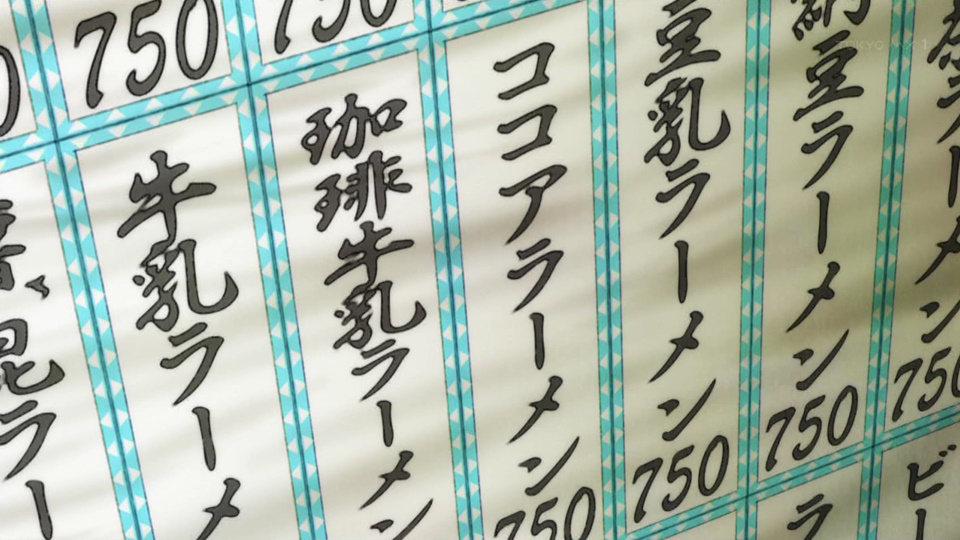 TOKYO MX 1
750
750
ラーメン
750
納豆ラーメン
750
豆乳ラーメン
750
ココアラーメン
750
珈琲牛乳ラーメン
牛乳ラーメ
昆ラー
ビー
ラ